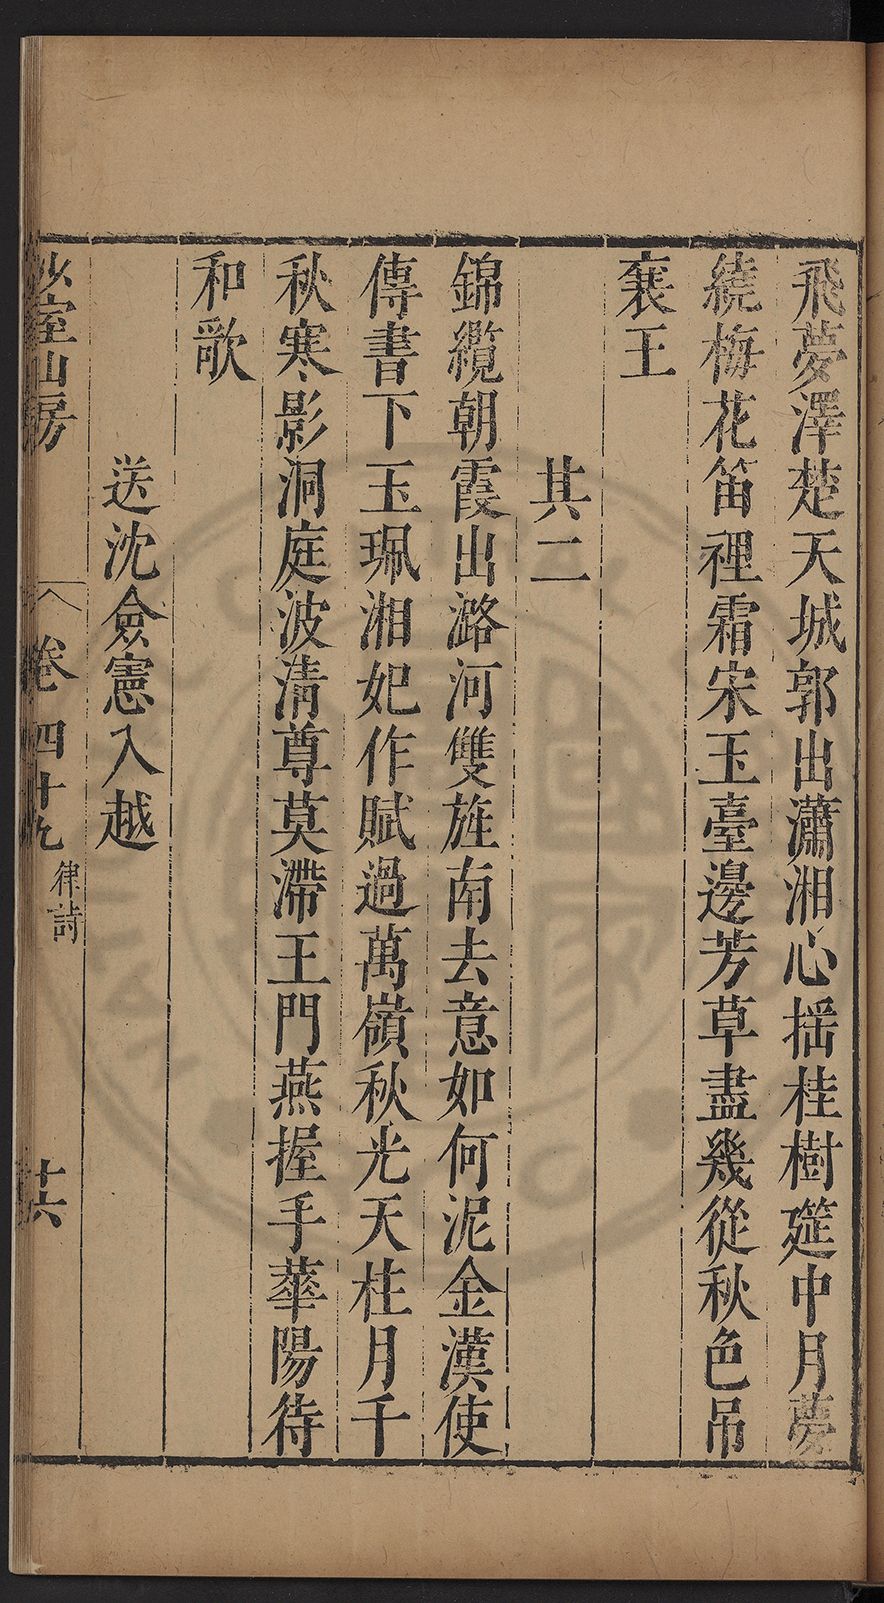 飛夢澤楚天城郭出瀟湘心揺桂樹筵中月夢
繞梅花笛裡霜宋玉臺邊芳草盡幾從秋色吊
襄王
其二
錦纜朝霞出潞河雙旌南去意如何泥金漢使
傳書下玉珮湘妃作賦過萬嶺秋光天柱月千
秋寒影洞庭波清尊莫滯王門燕握手華陽待
和歌
送沈僉憲入越
少室山房
卷四十九
律詩
十六